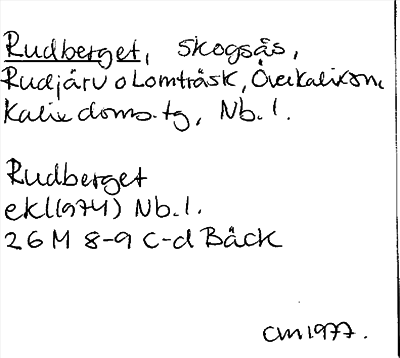 Rudberget, skogsås,
Rudjärv o Lomträsk, Överkalix sn,
Kalix doms.tg, Nb.l.
Rudberget
ekl(1974) Nb.l.
26 M 8-9 c-d Bäck
CM1977.